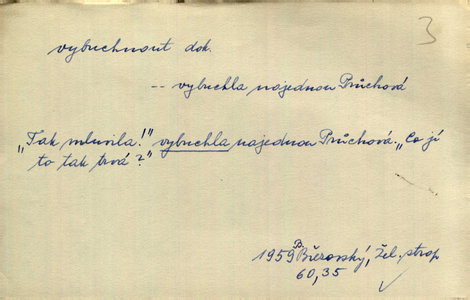 3
vybuchnout dok.
-- vybuchla najednou Průchová
„Tak mluvila!" vybuchla najednou Průchová. „Co jí
to tak trvá?"
1959 B Březovský, Žel. strop
60, 35